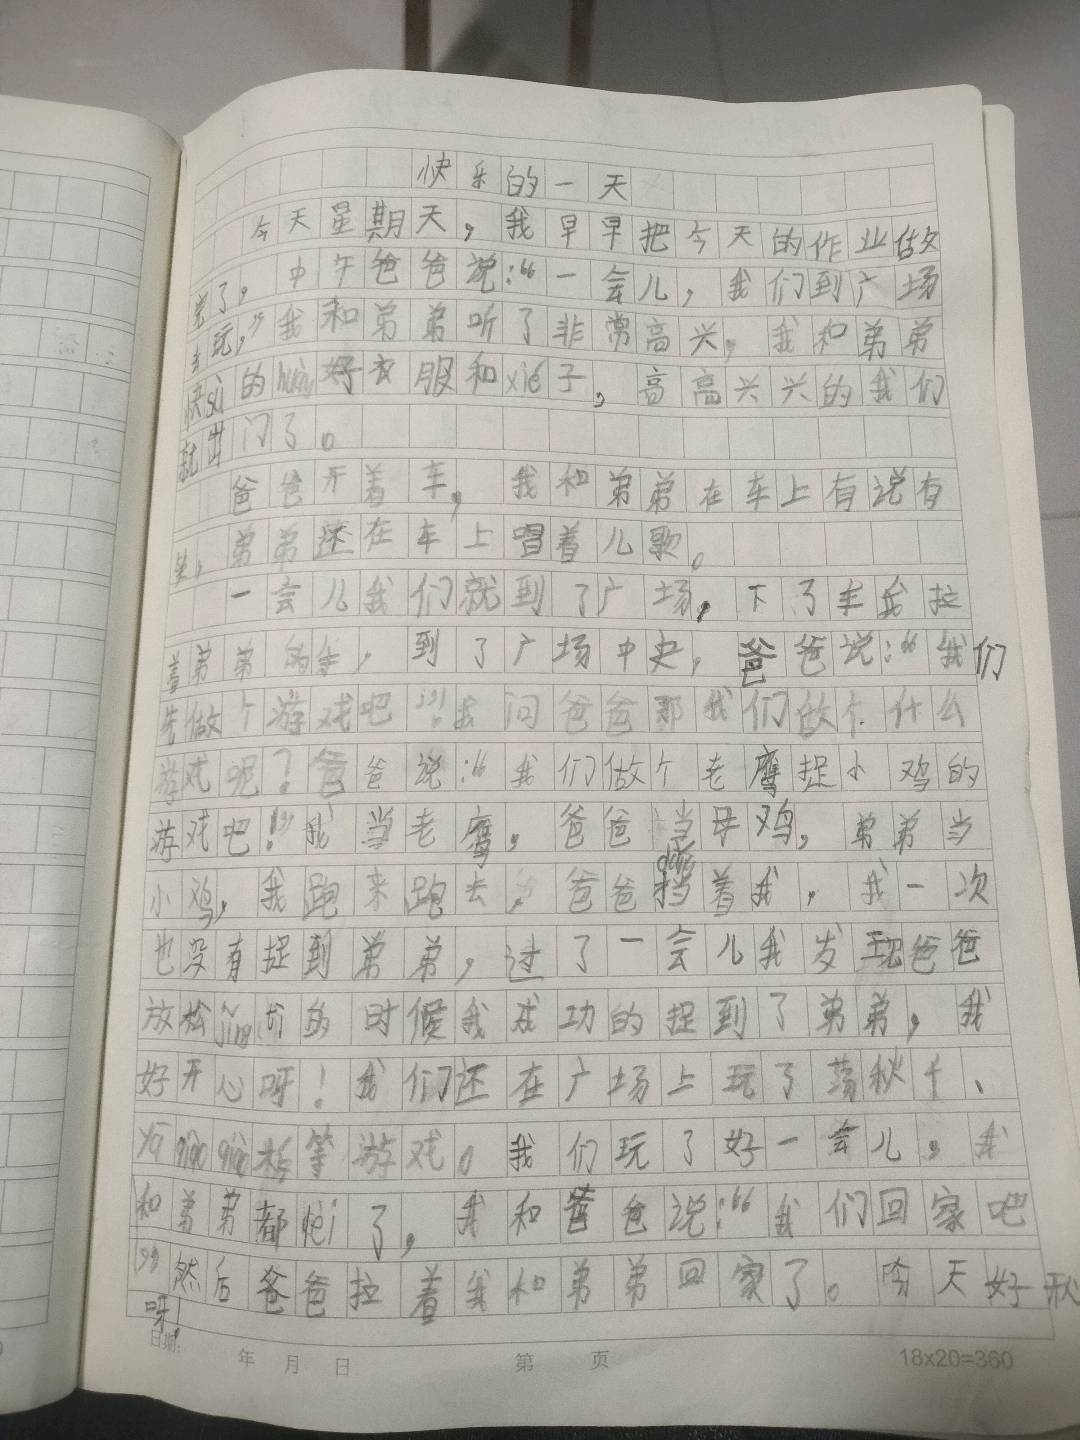 快乐的一天
今天星期天，我早早把今天的作业做
完了，中午爸爸说：“一会儿，我们到广场
去玩，”我和弟弟听了非常高兴，我和弟弟
快sù的huàn好衣服和xié子，高高兴兴的我们
就出门了。
爸爸开着车，我和弟弟在车上有说有
笑，弟弟还在车上唱着儿歌。
一会儿我们就到了广场，下了车我拉
着弟弟的手，到了广场中央，爸爸说：“我们
先做个游戏吧！”我问爸爸那我们做个什么
游戏呢？爸爸说：“我们做个老鹰捉小鸡的
游戏吧！”我当老鹰，爸爸当母鸡，弟弟当
小鸡，我跑来跑去，爸爸挡着我，我一次
也没有捉到弟弟，过了一会儿我发现爸爸
放松jǐng的时候我成功的捉到了弟弟，我
好开心呀！我们还在广场上玩了荡秋千、
qiāo qiāo板等游戏。我们玩了好一会儿，我
和弟弟都了，我和爸爸说：“我们回家吧
”然后爸爸拉着我和弟弟回家了。今天好
呀！
日期：
年 月 日 第 页 18x20=360